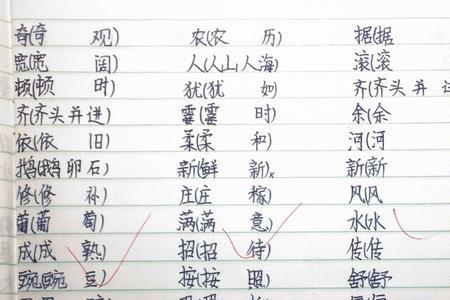 奇(奇 观) 农(农 历) 据(据
宽(宽 阔) 人(人山人海) 滚(滚
顿(顿 时) 犹(犹 如 齐(齐头并
齐(齐头并进) 霎(霎 时) 余(余
依(依 旧) 柔(柔 和) 河(河
鹅(鹅卵石) 新(鲜 新) 新(新
修(修 补) 庄(庄 稼) 风(风
葡(葡 萄) 满(满 意) 水(水
成(成 熟) 招(招 待) 传(传
豌(豌 豆) 按(按 照) 舒(舒